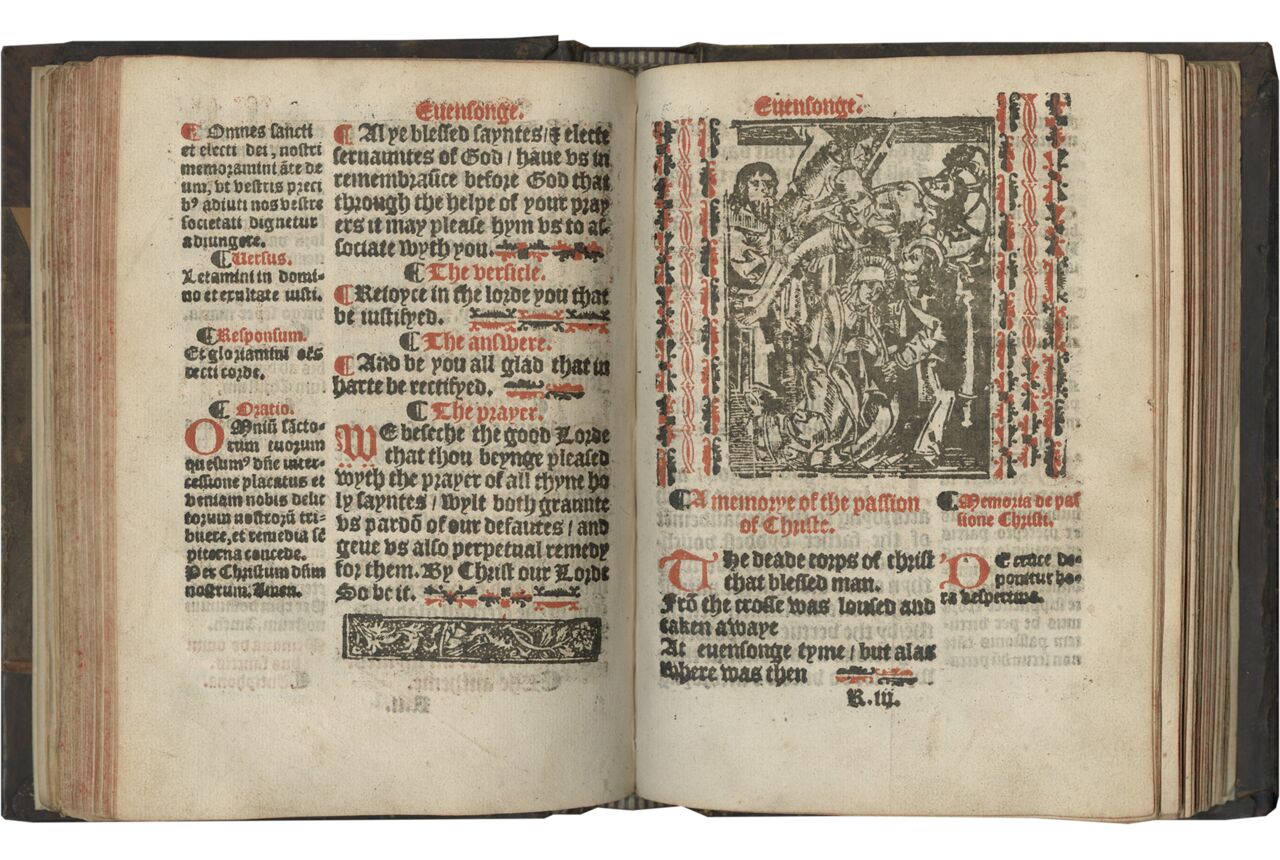 Euensonge.
¶ Omnes sancti
et electi dei, nostri
memoramini ãte de
um, vt vestris preci
bꝰ adiuti nos vestre
societati dignetur
adiungere.
¶ Versus.
Letamini in domi-
no et exultate iusti.
¶ Responsum.
Et gloriamini oẽs
recti corde.
¶ Oratio.
OMniũ sãcto-
rum tuorum
quesumꝰ dñe inter-
cessione placatus et
veniam nobis delic
torum nostrorũ tri-
buere, et remedia sẽ
piterna concede.
Per Christum dñm
nostrum. Amen.
¶ Al ye blessed sayntes / & electe
seruauntes of God / haue vs in
remembraũce before God that
through the helpe of your pray
ers it may please hym vs to as-
sociate wyth you.
¶ The versicle.
¶ Reioyce in the lorde you that
be iustifyed.
¶ The answere.
¶ And be you all glad that in
harte be rectifyed.
¶ The prayer.
WE beseche the good Lorde
that thou beynge pleased
wyth the prayer of all thyne ho
ly sayntes / wylt both graunte
vs pardõ of our defautes / and
geue vs also perpetual remedy
for them. By Christ our Lorde
So be it.
Euensonge.
¶ A memorye of the passion
of Christe.
THe deade corps of christ
that blessed man.
Frõ the crosse was loused and
taken awaye
At euensonge tyme / but alas
where was then
R.iij.
¶ Memoria de pas
sione Christi.
DE cruce de-
ponitur ho-
ra vespertina.